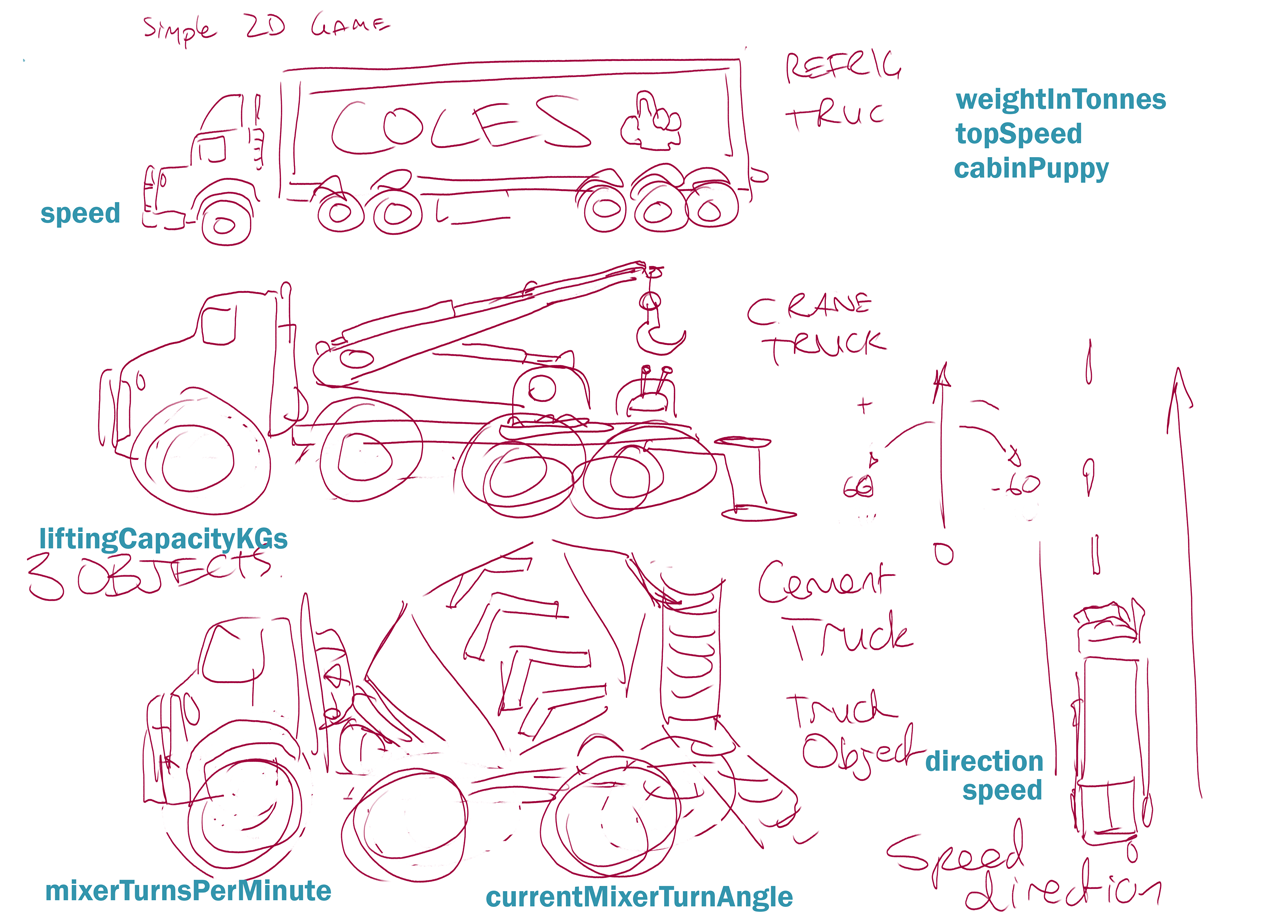 Simple 2D GAME
COLES
REFRIG
TRUC
weightInTonnes
topSpeed
cabinPuppy
speed
CRANE
TRUCK
+
60
-60
...
0
liftingCapacityKGs
3 OBJECTS.
Cement
Truck
Truck
Object
direction
speed
Speed
direction
mixerTurnsPerMinute
currentMixerTurnAngle